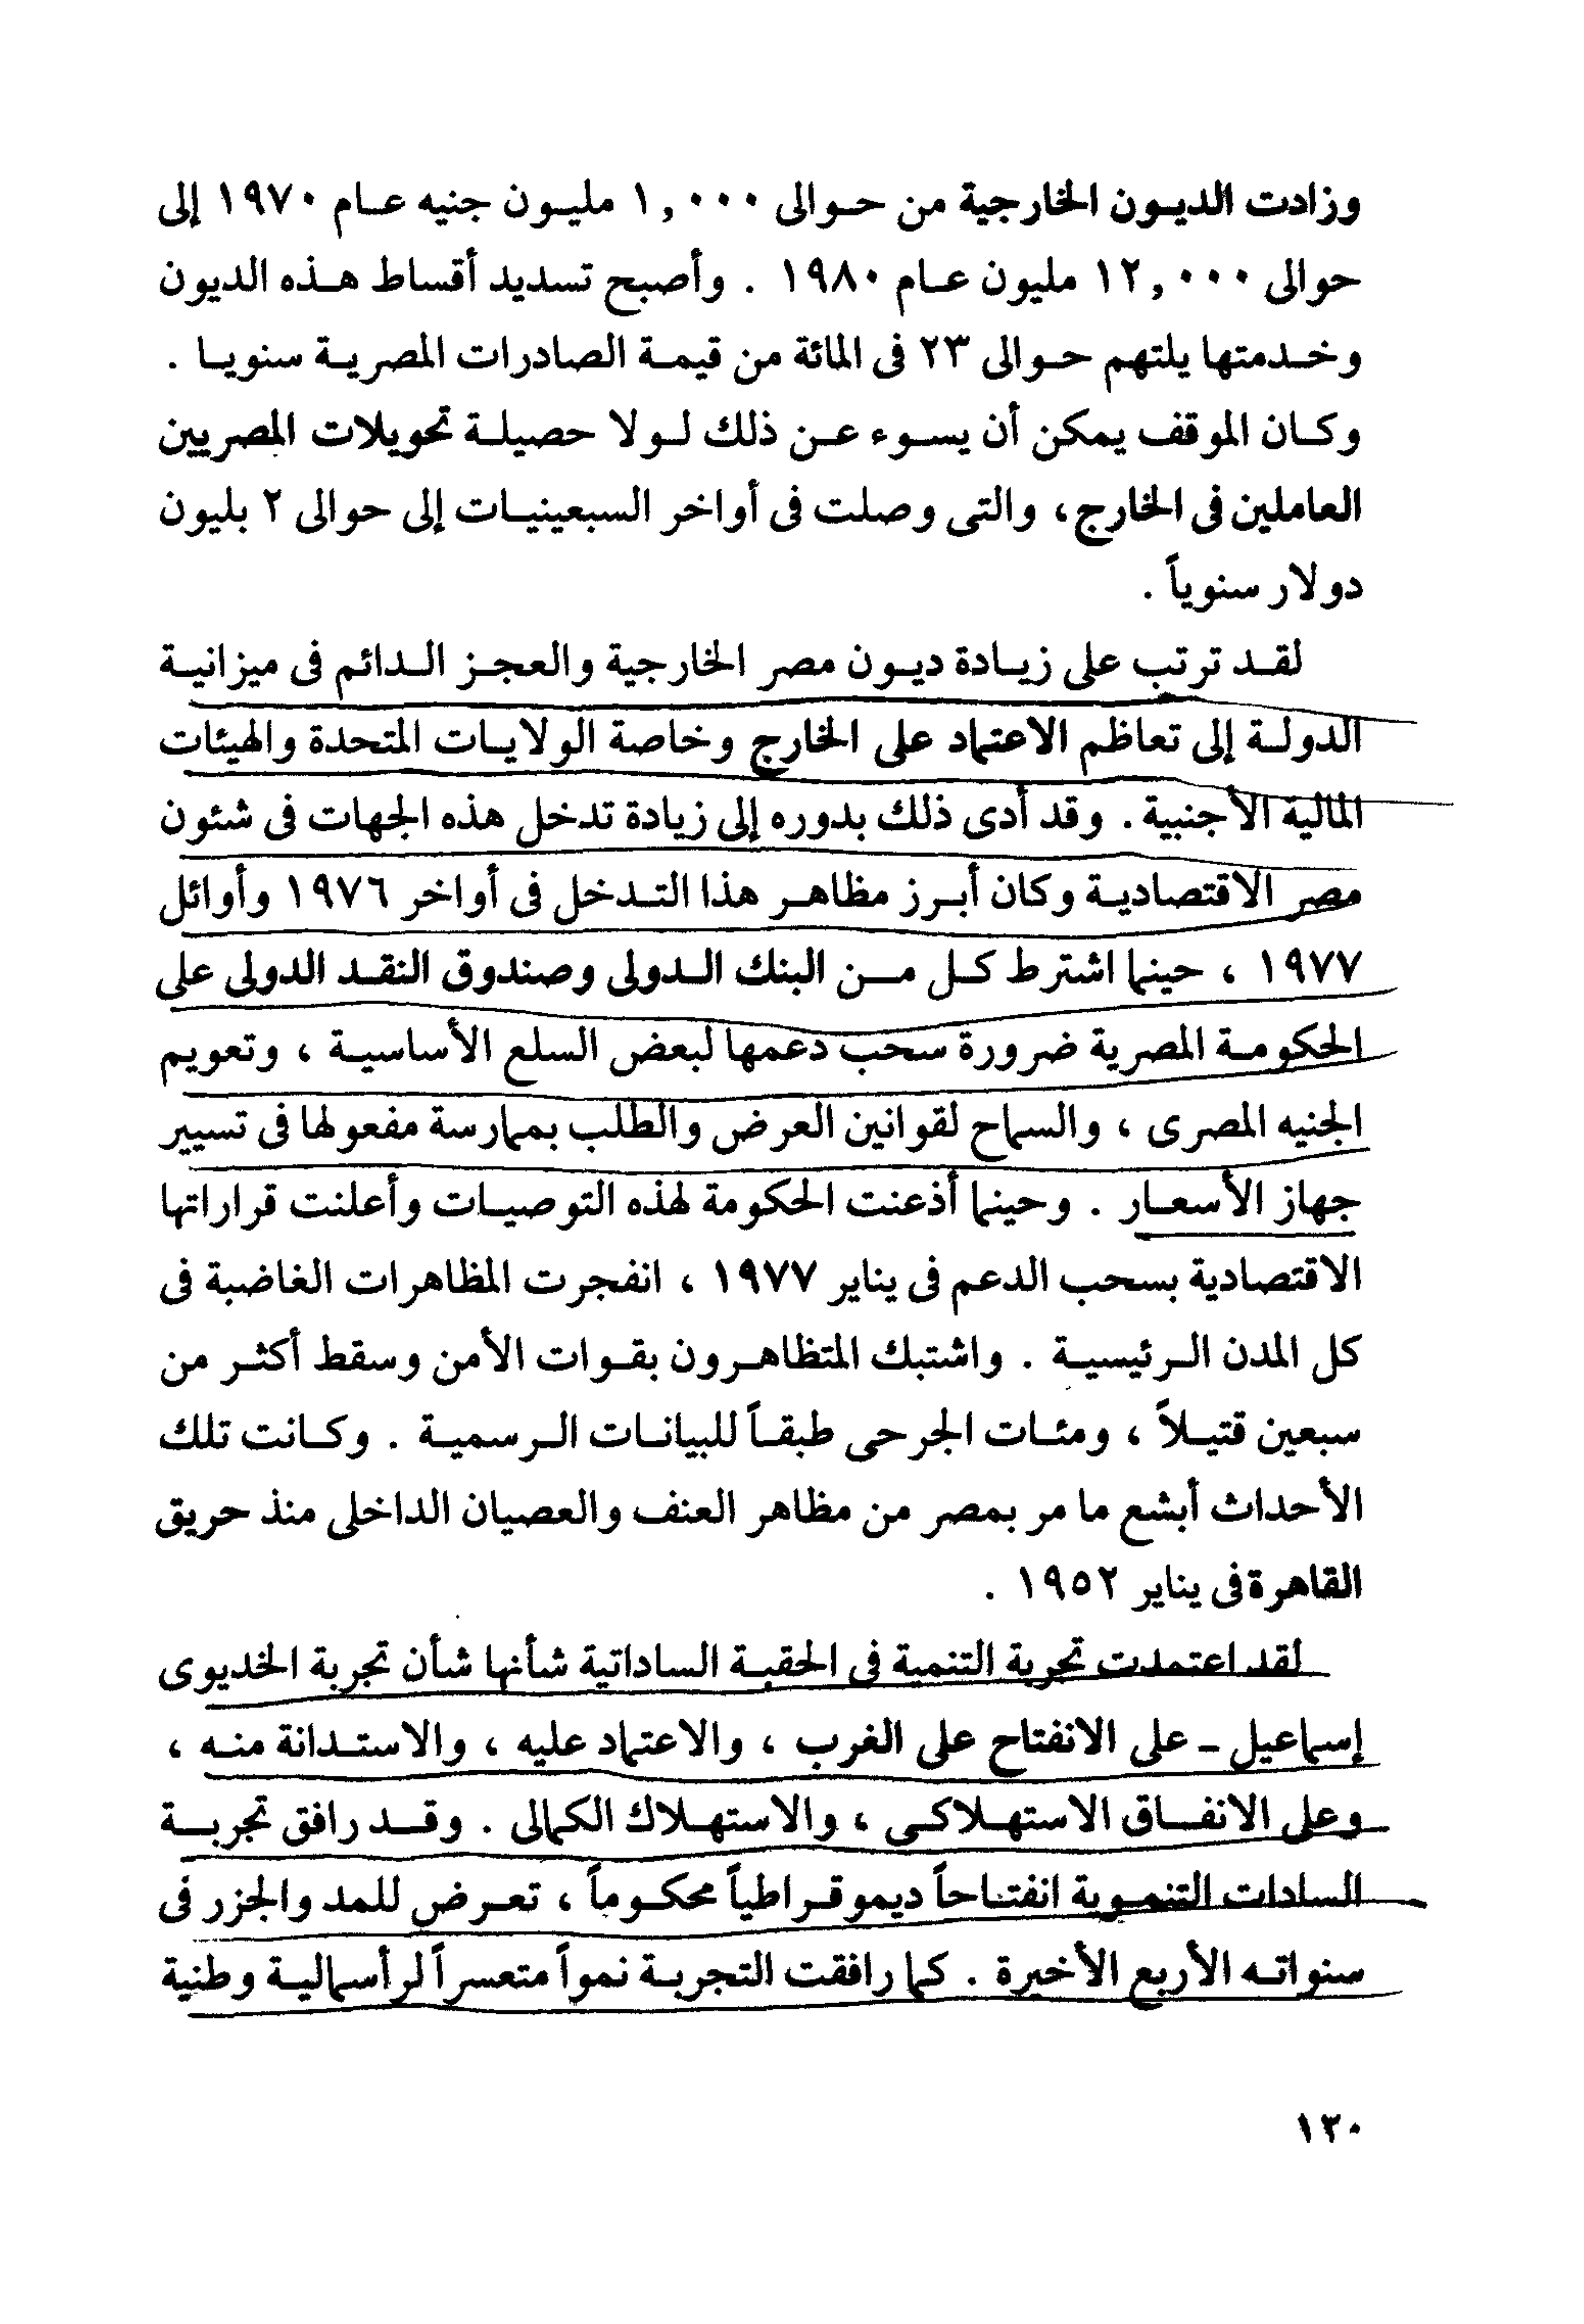 وزادت الديون الخارجية من حوالى ١,٠٠٠ مليون جنيه عام ١٩٧٠ إلى
حوالى ١٢,٠٠٠ مليون عام ١٩٨٠ . وأصبح تسديد أقساط هذه الديون
وخدمتها يلتهم حوالى ٢٣ فى المائة من قيمة الصادرات المصرية سنويا .
وكان الموقف يمكن أن يسوء عن ذلك لولا حصيلة تحويلات المصريين
العاملين فى الخارج، والتى وصلت فى أواخر السبعينيات إلى حوالى ٢ بليون
دولار سنوياً .
لقد ترتب على زيادة ديون مصر الخارجية والعجز الدائم فى ميزانية
الدولة إلى تعاظم الاعتماد على الخارج وخاصة الولايات المتحدة والهيئات
المالية الأجنبية . وقد أدى ذلك بدوره إلى زيادة تدخل هذه الجهات فى شئون
مصر الاقتصادية وكان أبرز مظاهر هذا التدخل فى أواخر ١٩٧٦ وأوائل
١٩٧٧ ، حينما اشترط كل من البنك الدولى وصندوق النقد الدولى على
الحكومة المصرية ضرورة سحب دعمها لبعض السلع الأساسية ، وتعويم
الجنيه المصرى ، والسماح لقوانين العرض والطلب بممارسة مفعولها فى تسيير
جهاز الأسعار . وحينما أذعنت الحكومة لهذه التوصيات وأعلنت قراراتها
الاقتصادية بسحب الدعم فى يناير ١٩٧٧ ، انفجرت المظاهرات الغاضبة فى
كل المدن الرئيسية . واشتبك المتظاهرون بقوات الأمن وسقط أكثر من
سبعين قتيلاً ، ومئات الجرحى طبقاً للبيانات الرسمية . وكانت تلك
الأحداث أبشع ما مر بمصر من مظاهر العنف والعصيان الداخلى منذ حريق
القاهرة فى يناير ١٩٥٢ .
لقد اعتمدت تجربة التنمية فى الحقبة الساداتية شأنها شأن تجربة الخديوى
إسماعيل - على الانفتاح على الغرب ، والاعتماد عليه ، والاستدانة منه ،
وعلى الانفاق الاستهلاكى ، والاستهلاك الكمالى . وقد رافق تجربة
السادات التنموية انفتاحاً ديموقراطياً محكوماً ، تعرض للمد والجزر فى
سنواته الأربع الأخيرة . كما رافقت التجربة نمواً متعسراً لرأسمالية وطنية
١٣٠